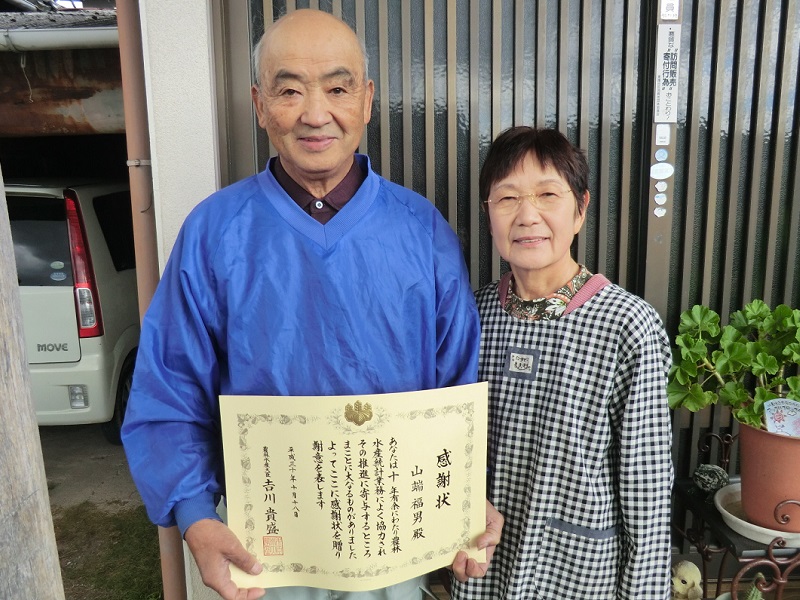 感謝状
山端福男殿
あなたは十年有余にわたり農林
水産統計業務によく協力され
その推進に寄与するところ
まことに大なるものがありました
よってここに感謝状を贈り
謝意を表します
平成三十年十月十八日
農林水産大臣 吉川貴盛
悪質な
訪問販売
寄付行為
おことわり
MOVE